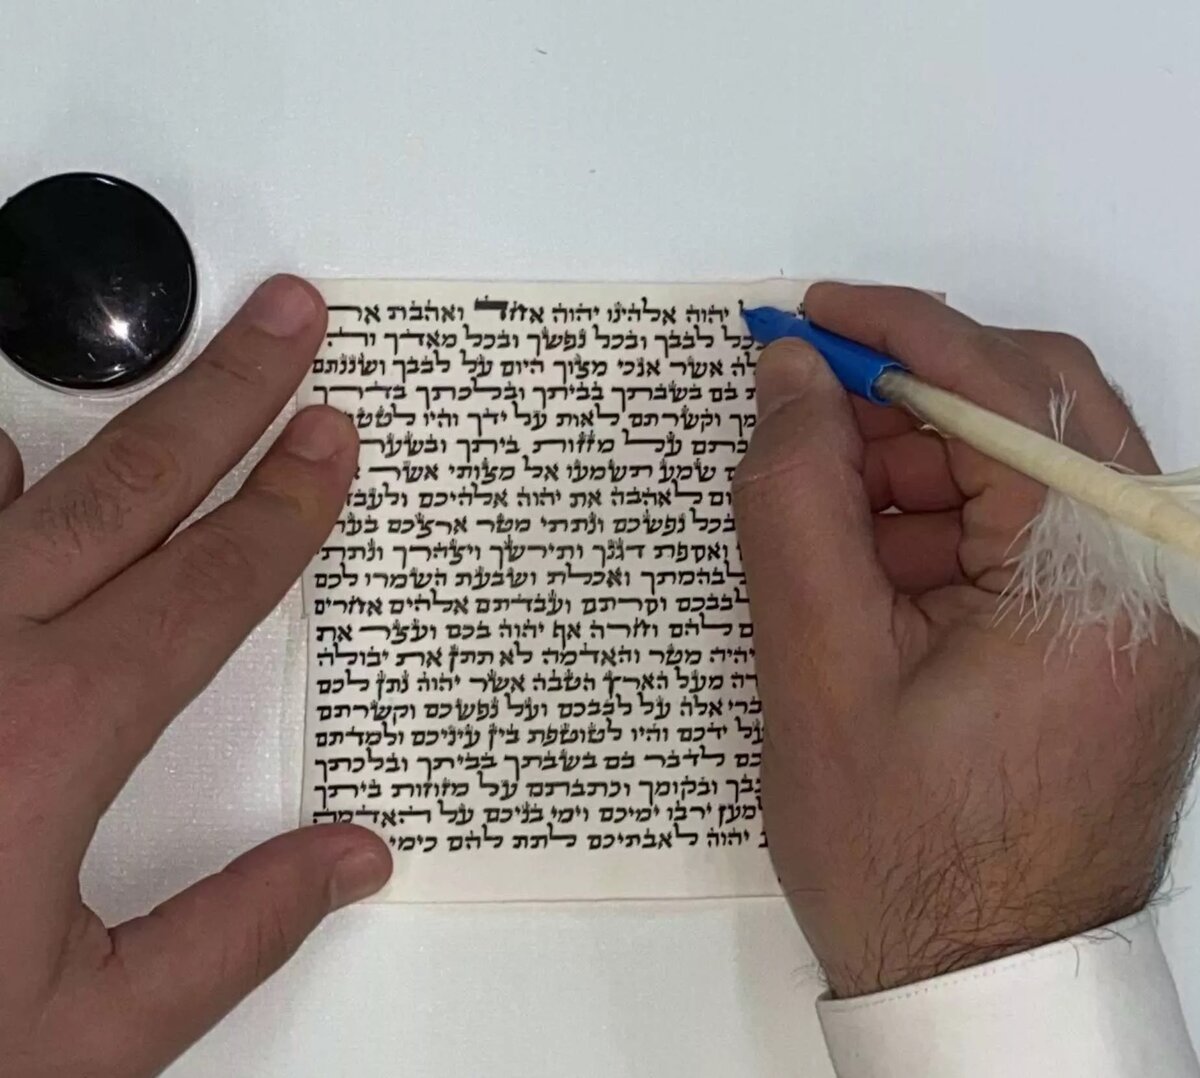 יהוה אלהינו יהוה אחד ואהבת את
בכל לבבך ובכל נפשך ובכל מאדך
אשר אנכי מצוך היום על לבבך ושננתם
בם בשבתך בביתך ובלכתך בדרך
וקשרתם לאות על ידך והיו
על מזזות ביתך
שמע תשמעו אל מצותי אשר
לאהבה את יהוה אלהיכם
בכל נפשכם ונתתי מטר ארצכם
ואספת דגנך ותירשך ויצהרך
לבהמתך ואכלת ושבעת השמרו לכם
לבבכם וסרתם ועבדתם אלהים אחרים
להם וחרה אף יהוה בכם ועצר את
יהיה מטר והאדמה לא תתן את יבולה
מעל הארץ הטבה אשר יהוה נתן לכם
אלה על לבבכם ועל נפשכם וקשרתם
על ידכם והיו לטוטפת בין עיניכם ולמדתם
לדבר בם בשבתך בביתך ובלכתך
ובקומך וכתבתם על מזוזות ביתך
למען ירבו ימיכם וימי בניכם על האדמה
יהוה לאבתיכם לתת להם כימי